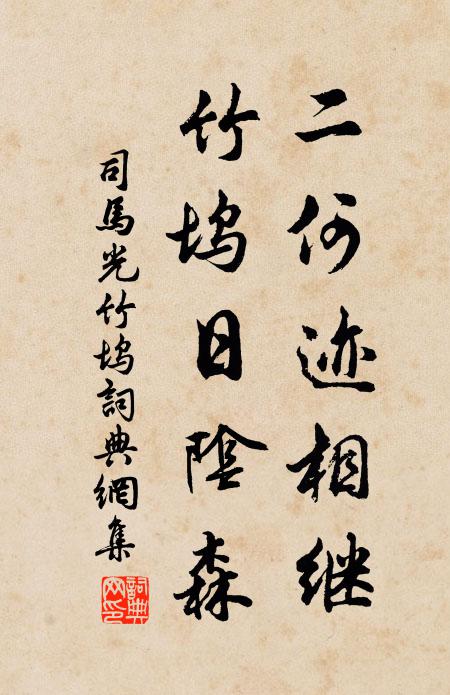 二何迹相继
竹坞日陰森
司馬光竹坞詞典網集
詞典網印